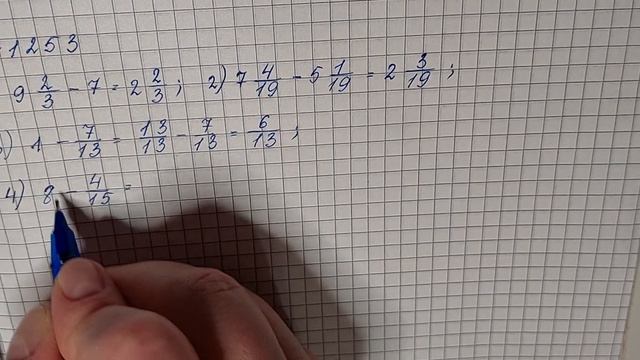 1253
9 2/3 - 7 = 2 2/3 ; 2) 7 4/19 - 5 1/19 = 2 3/19 ;
) 1 - 7/13 = 13/13 - 7/13 = 6/13 ;
4) 8 - 4/15 =